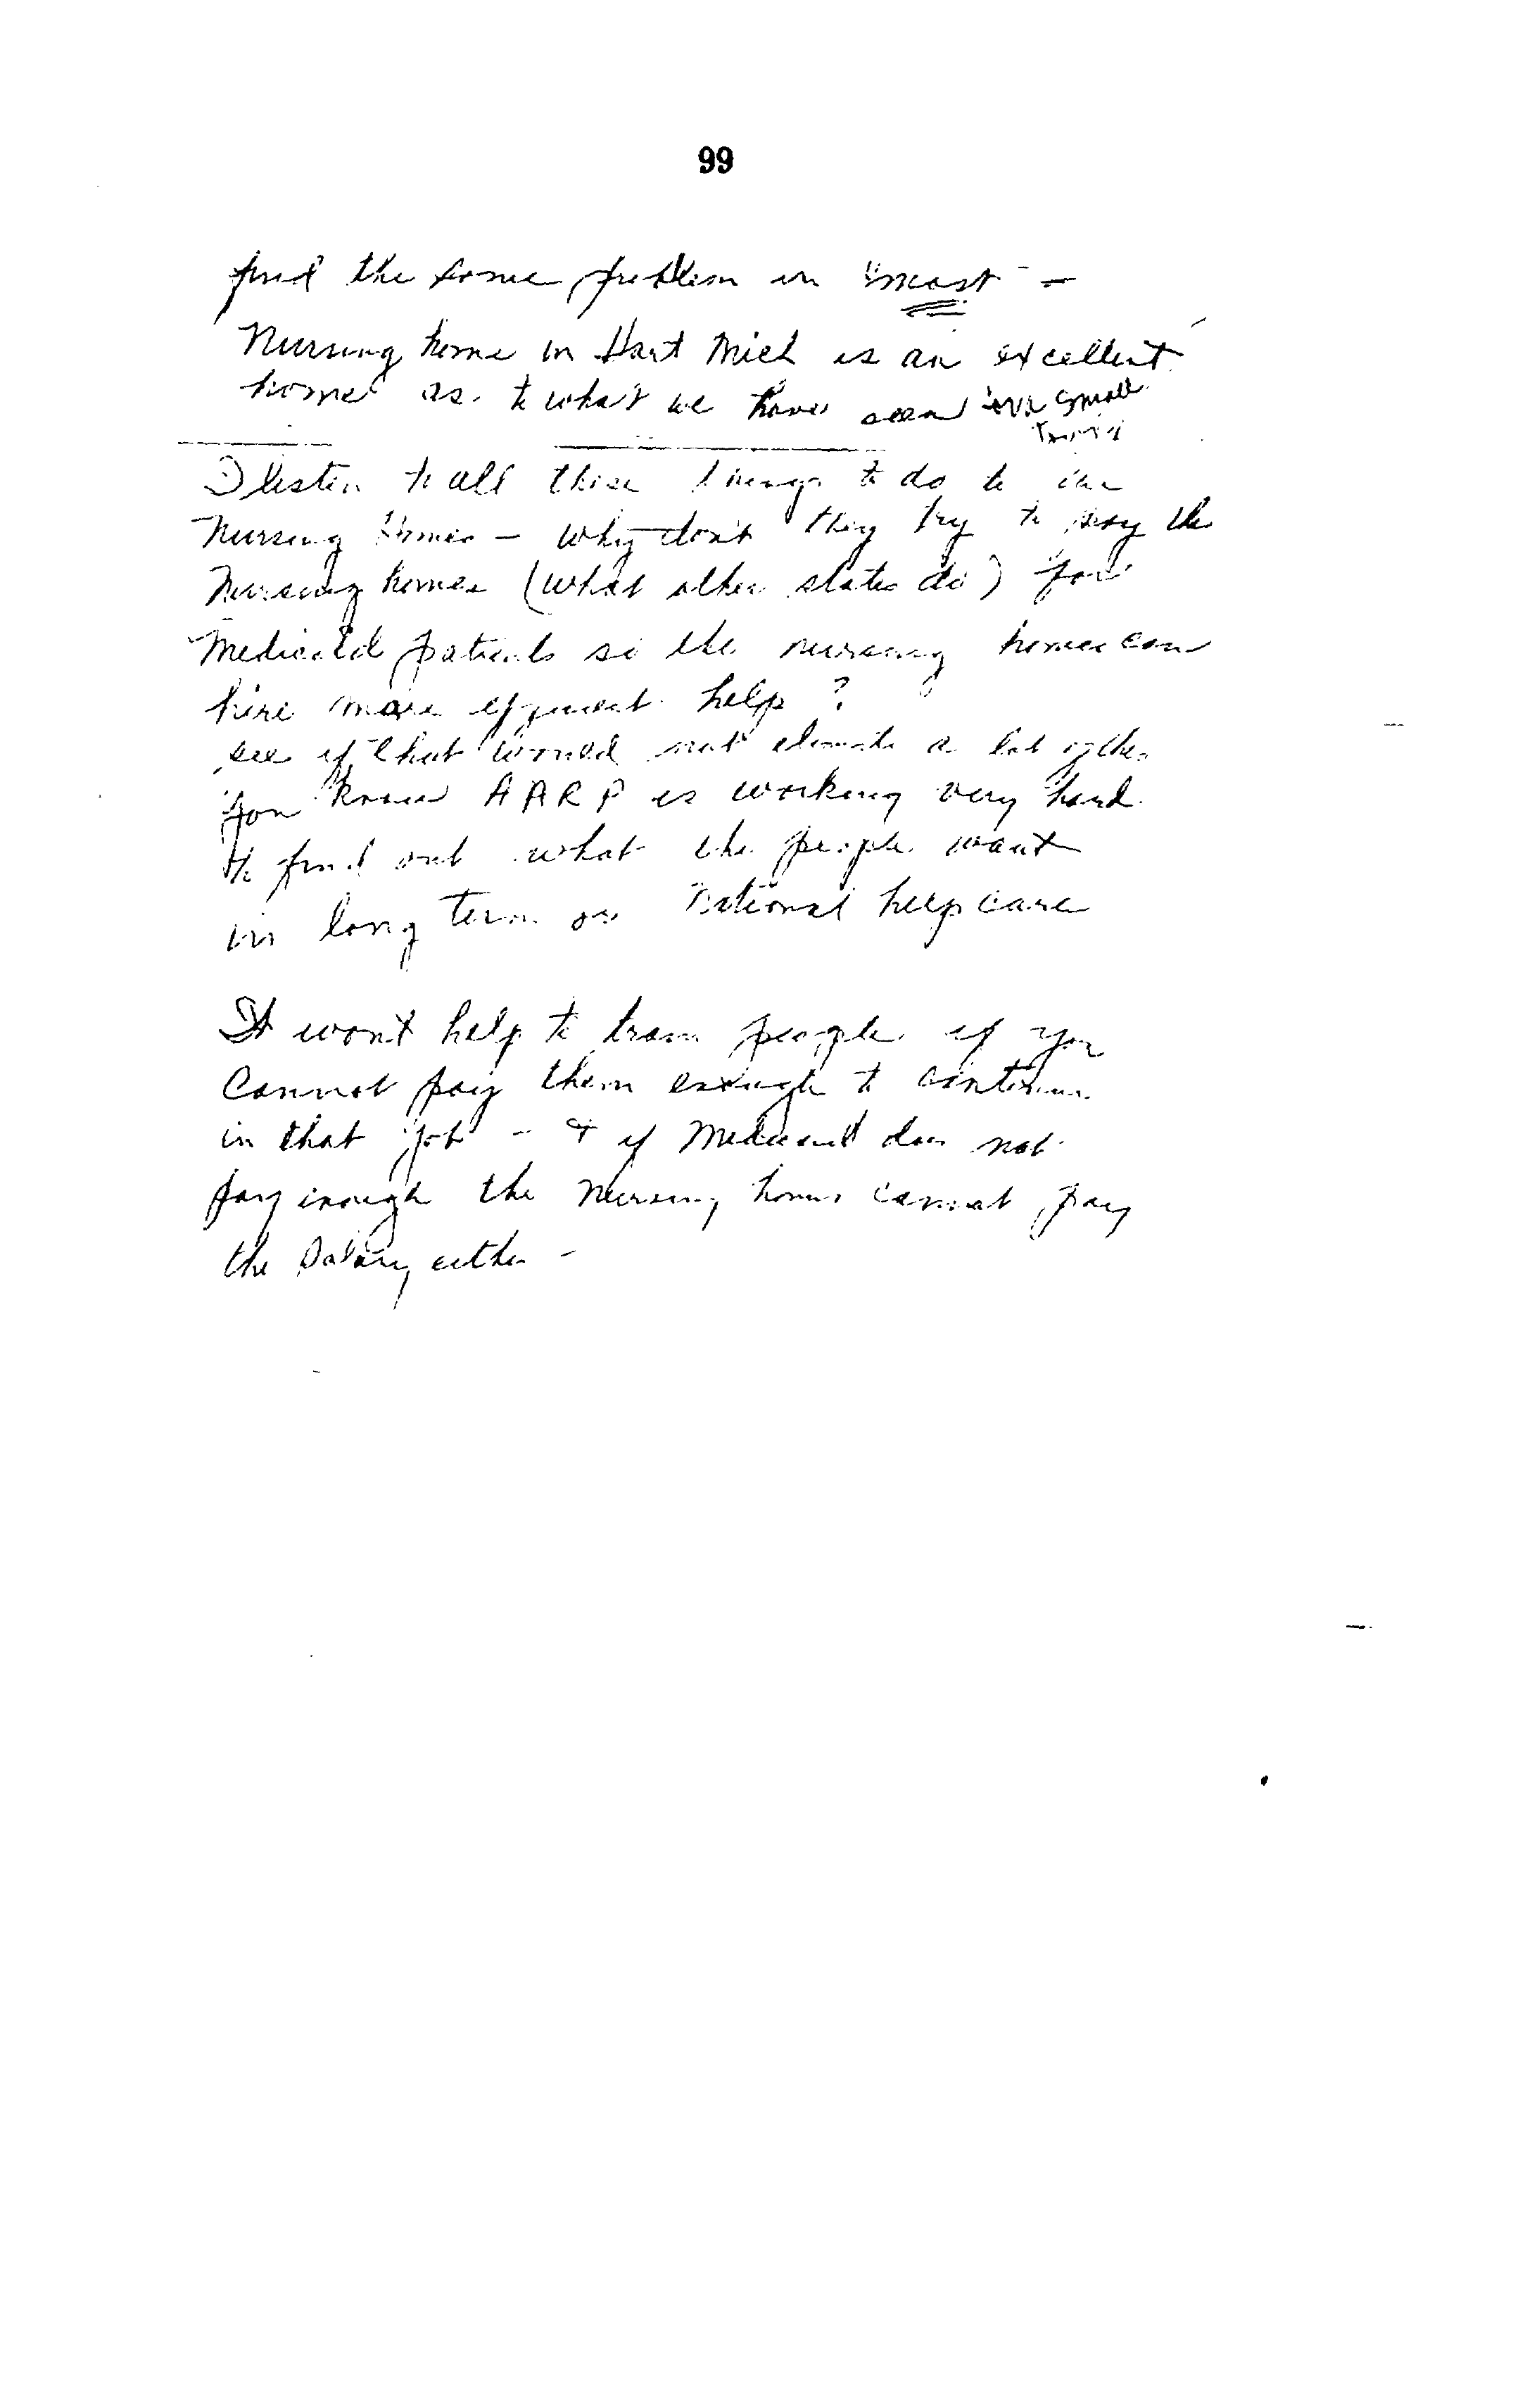 99
find the same problem in "most" -
Nursing home in Hart Mich is an excellent
home as to what we have seen in small
towns
I listen to all these things to do to the
Nursing Homes - why don't they try to pay the
Nursing homes (what other states do) for
Medicaid patients so the nursing homes can
hire more efficient help ?
see if that would not eliminate a lot of the
you know AARP is working very hard
to find out what the people want
in long term or National help care
It won't help to train people if you
Cannot pay them enough to continue
in that job - & if Medicaid does not
pay enough the Nursing homes cannot pay
the Salary either -